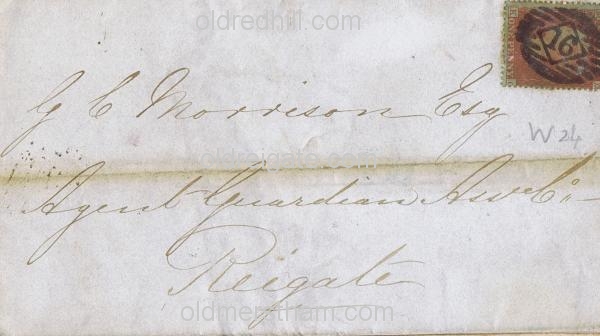 oldredhill.com
16
G C Morrison Esq
W 24
oldreigate.com
Agent Guardian Assce Co
Reigate
oldmerstham.com